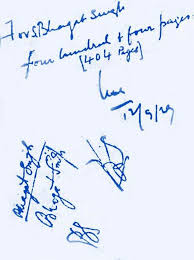 For S. Bhagat Singh
Four hundred & four pages.
[404 Pages]
12/9/29
Bhagat Singh
Bhagat Singh
BS